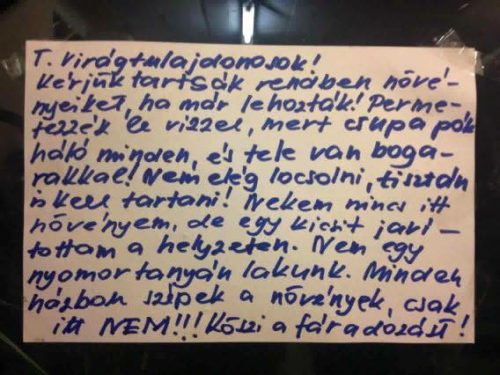 T. Virágtulajdonosok!
Kérjük tartsák rendben növé-
nyeiket, ha már lehozták! Perme-
tezzék le vízzel, mert csupa pók
háló minden, és tele van boga-
rakkal! Nem elég locsolni, tisztán
is kell tartani! Nekem nincs itt
növényem, de egy kicsit javí-
tottam a helyzeten. Nem egy
nyomortanyán lakunk. Minden
házban szépek a növények, csak
itt NEM!!! Köszi a fáradozást!